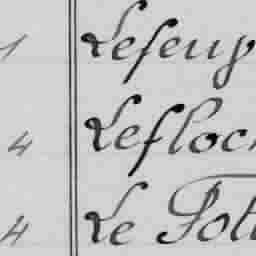 1 Lefeup
4 Lefloc
4 Le Poll